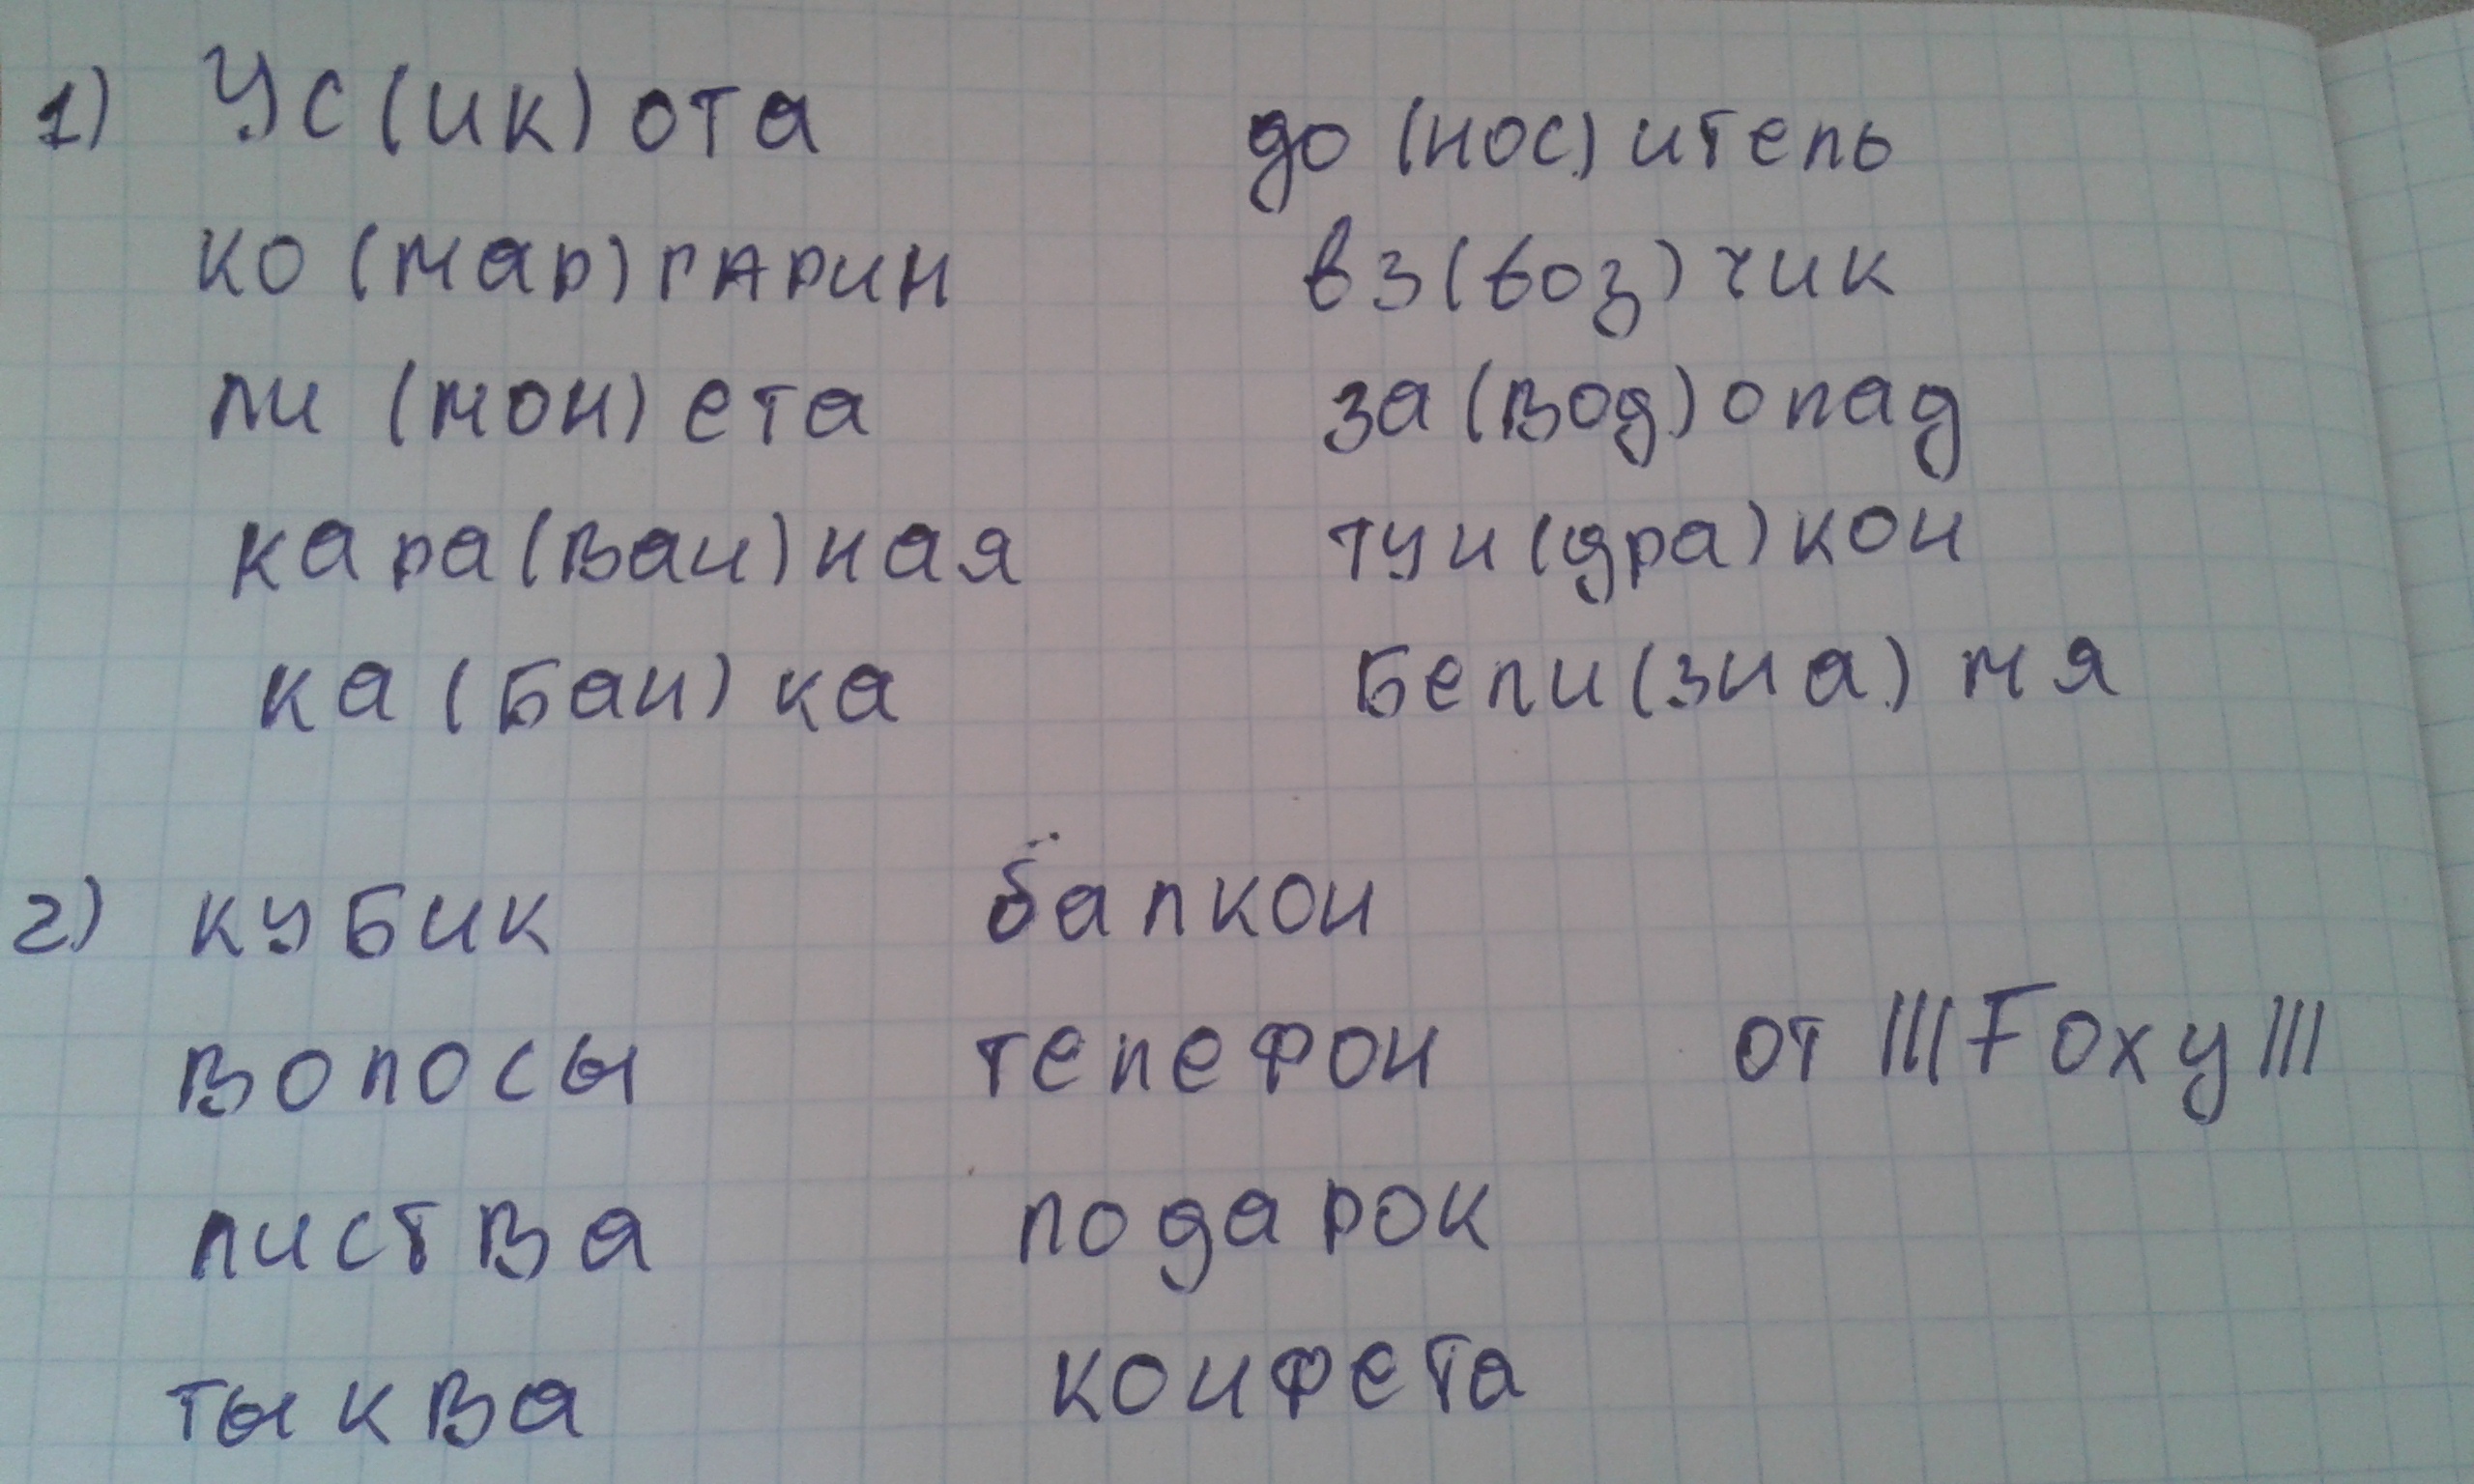 1) Ус(ик)ота
ко(мар)гарин
ли(мон)ета
кара(ван)ная
ка(бан)ка
до(нос)итель
вз(воз)чик
за(вод)опад
тун(дра)кон
Бели(зна)мя
2) кубик
волосы
листва
тыква
балкон
телефон
подарок
конфета
от |||Foxy|||